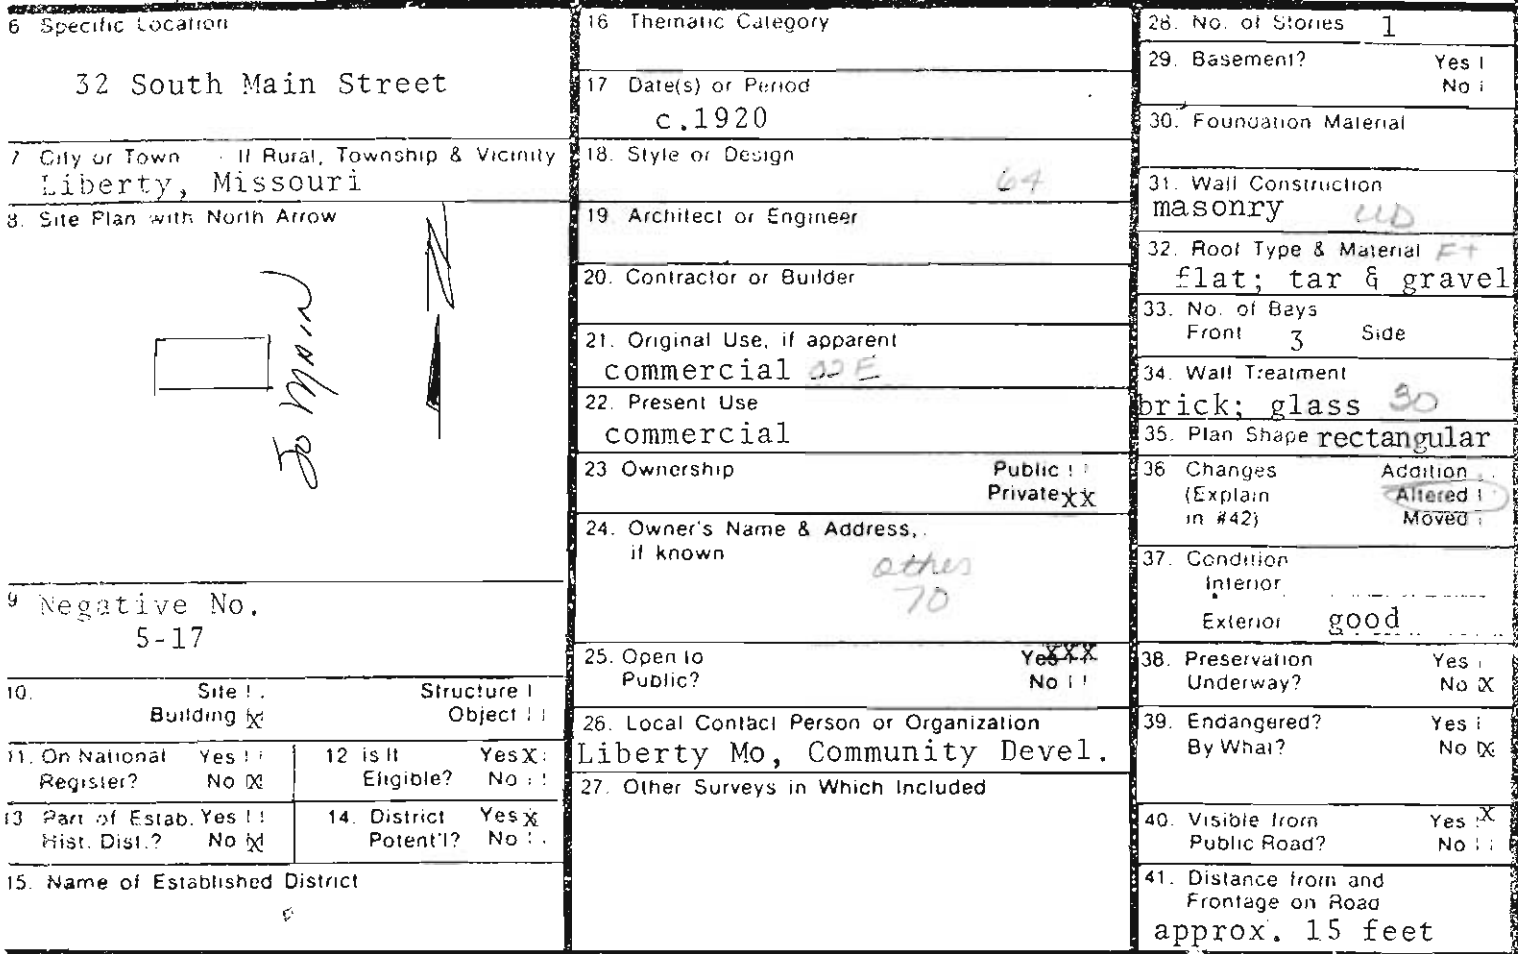 6 Specific Location
32 South Main Street
7 City or Town If Rural, Township & Vicinity
Liberty, Missouri
8. Site Plan with North Arrow
N
So Main
9 Negative No.
5-17
10. Site Structure
Building X Object
11. On National Register? Yes No X
12 Is It Eligible? Yes X No
13 Part of Estab. Hist. Dist.? Yes No X
14. District Potent'l? Yes X No
15. Name of Established District
16 Thematic Category
17 Date(s) or Period
c.1920
18. Style or Design
64
19 Architect or Engineer
20. Contractor or Builder
21. Original Use, if apparent
commercial 02E
22. Present Use
commercial
23 Ownership Public
Private XX
24. Owner's Name & Address,
if known
other
70
25. Open to Yes XXX
Public? No
26. Local Contact Person or Organization
Liberty Mo, Community Devel.
27. Other Surveys in Which Included
28. No. of Stories 1
29. Basement? Yes
No
30. Foundation Material
31. Wall Construction
masonry UD
32. Roof Type & Material FT
flat; tar & gravel
33. No. of Bays
Front 3 Side
34. Wall Treatment
brick; glass 30
35. Plan Shape rectangular
36 Changes Addition
(Explain Altered
in #42) Moved
37. Condition
Interior
Exterior good
38. Preservation Yes
Underway? No X
39. Endangered? Yes
By What? No X
40. Visible from Yes X
Public Road? No
41. Distance from and
Frontage on Road
approx. 15 feet